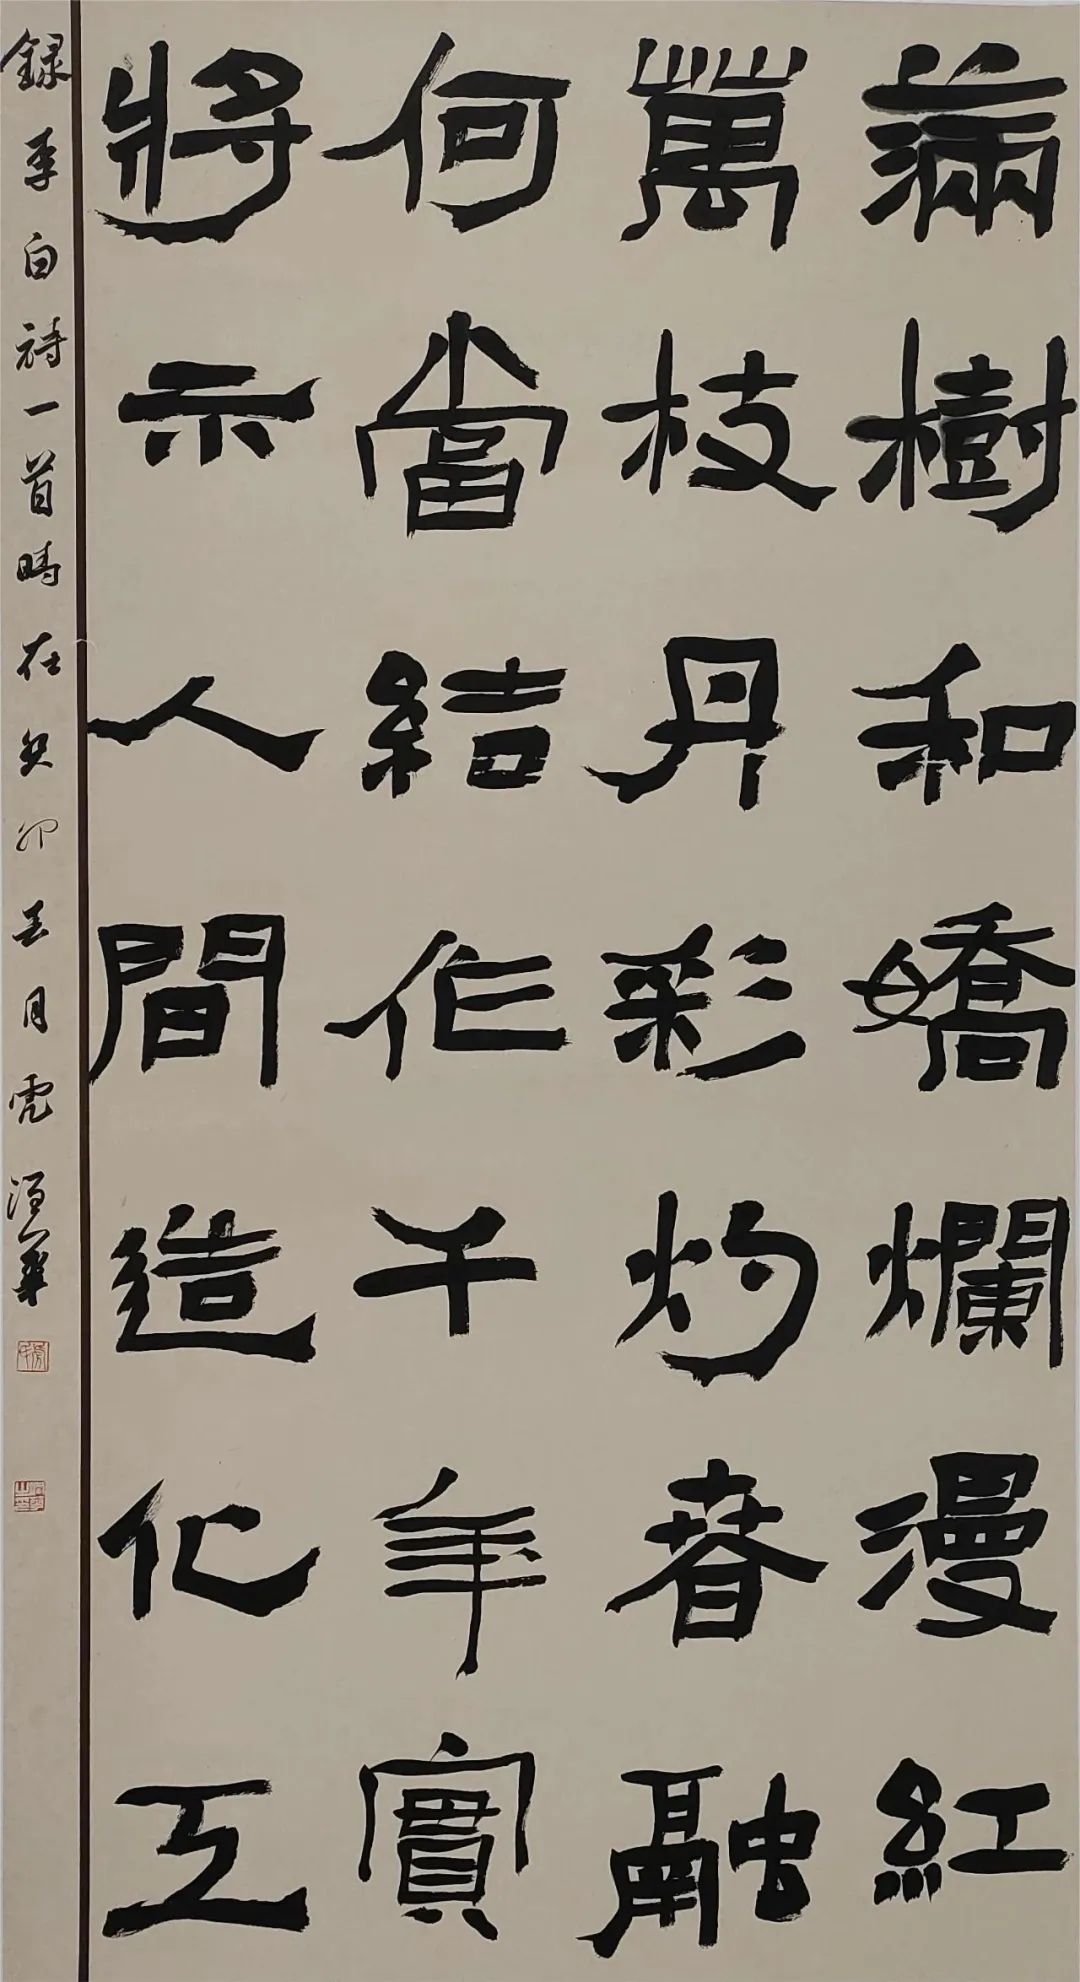 满樹和嬌爛漫紅
萬枝丹彩灼春融
何當結作千年實
將示人間造化工
録李白詩一首時在癸卯五月虎酒華